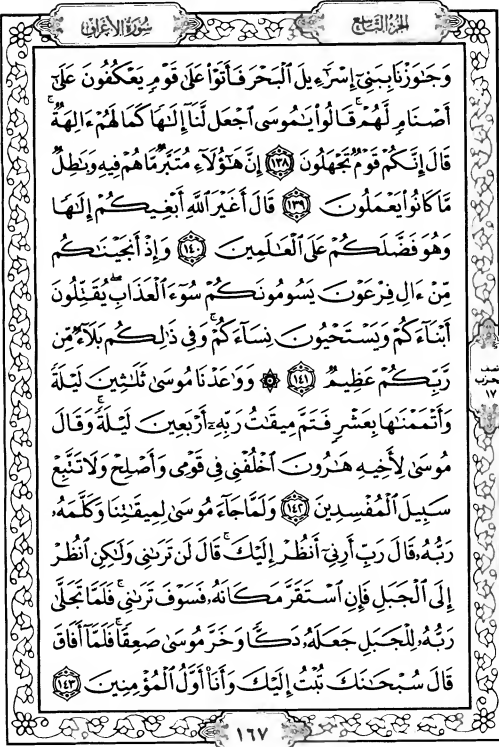 سُورَةُ الأَعْرَافِ الجُزْءُ التَّاسِعُ
وَجَٰوَزْنَا بِبَنِىٓ إِسْرَٰٓءِيلَ ٱلْبَحْرَ فَأَتَوْا۟ عَلَىٰ قَوْمٍ يَعْكُفُونَ عَلَىٰٓ
أَصْنَامٍ لَّهُمْ ۚ قَالُوا۟ يَٰمُوسَى ٱجْعَل لَّنَآ إِلَٰهًا كَمَا لَهُمْ ءَالِهَةٌ ۚ
قَالَ إِنَّكُمْ قَوْمٌ تَجْهَلُونَ ١٣٨ إِنَّ هَٰٓؤُلَآءِ مُتَبَّرٌ مَّا هُمْ فِيهِ وَبَٰطِلٌ
مَّا كَانُوا۟ يَعْمَلُونَ ١٣٩ قَالَ أَغَيْرَ ٱللَّهِ أَبْغِيكُمْ إِلَٰهًا
وَهُوَ فَضَّلَكُمْ عَلَى ٱلْعَٰلَمِينَ ١٤٠ وَإِذْ أَنجَيْنَٰكُم
مِّنْ ءَالِ فِرْعَوْنَ يَسُومُونَكُمْ سُوٓءَ ٱلْعَذَابِ ۖ يُقَتِّلُونَ
أَبْنَآءَكُمْ وَيَسْتَحْيُونَ نِسَآءَكُمْ ۚ وَفِى ذَٰلِكُم بَلَآءٌ مِّن
رَّبِّكُمْ عَظِيمٌ ١٤١ ۞ وَوَٰعَدْنَا مُوسَىٰ ثَلَٰثِينَ لَيْلَةً
وَأَتْمَمْنَٰهَا بِعَشْرٍ فَتَمَّ مِيقَٰتُ رَبِّهِۦٓ أَرْبَعِينَ لَيْلَةً ۚ وَقَالَ
مُوسَىٰ لِأَخِيهِ هَٰرُونَ ٱخْلُفْنِى فِى قَوْمِى وَأَصْلِحْ وَلَا تَتَّبِعْ
سَبِيلَ ٱلْمُفْسِدِينَ ١٤٢ وَلَمَّا جَآءَ مُوسَىٰ لِمِيقَٰتِنَا وَكَلَّمَهُۥ
رَبُّهُۥ قَالَ رَبِّ أَرِنِىٓ أَنظُرْ إِلَيْكَ ۚ قَالَ لَن تَرَىٰنِى وَلَٰكِنِ ٱنظُرْ
إِلَى ٱلْجَبَلِ فَإِنِ ٱسْتَقَرَّ مَكَانَهُۥ فَسَوْفَ تَرَىٰنِى ۚ فَلَمَّا تَجَلَّىٰ
رَبُّهُۥ لِلْجَبَلِ جَعَلَهُۥ دَكًّا وَخَرَّ مُوسَىٰ صَعِقًا ۚ فَلَمَّآ أَفَاقَ
قَالَ سُبْحَٰنَكَ تُبْتُ إِلَيْكَ وَأَنَا۠ أَوَّلُ ٱلْمُؤْمِنِينَ ١٤٣
نصف
الحزب
١٧
١٦٧